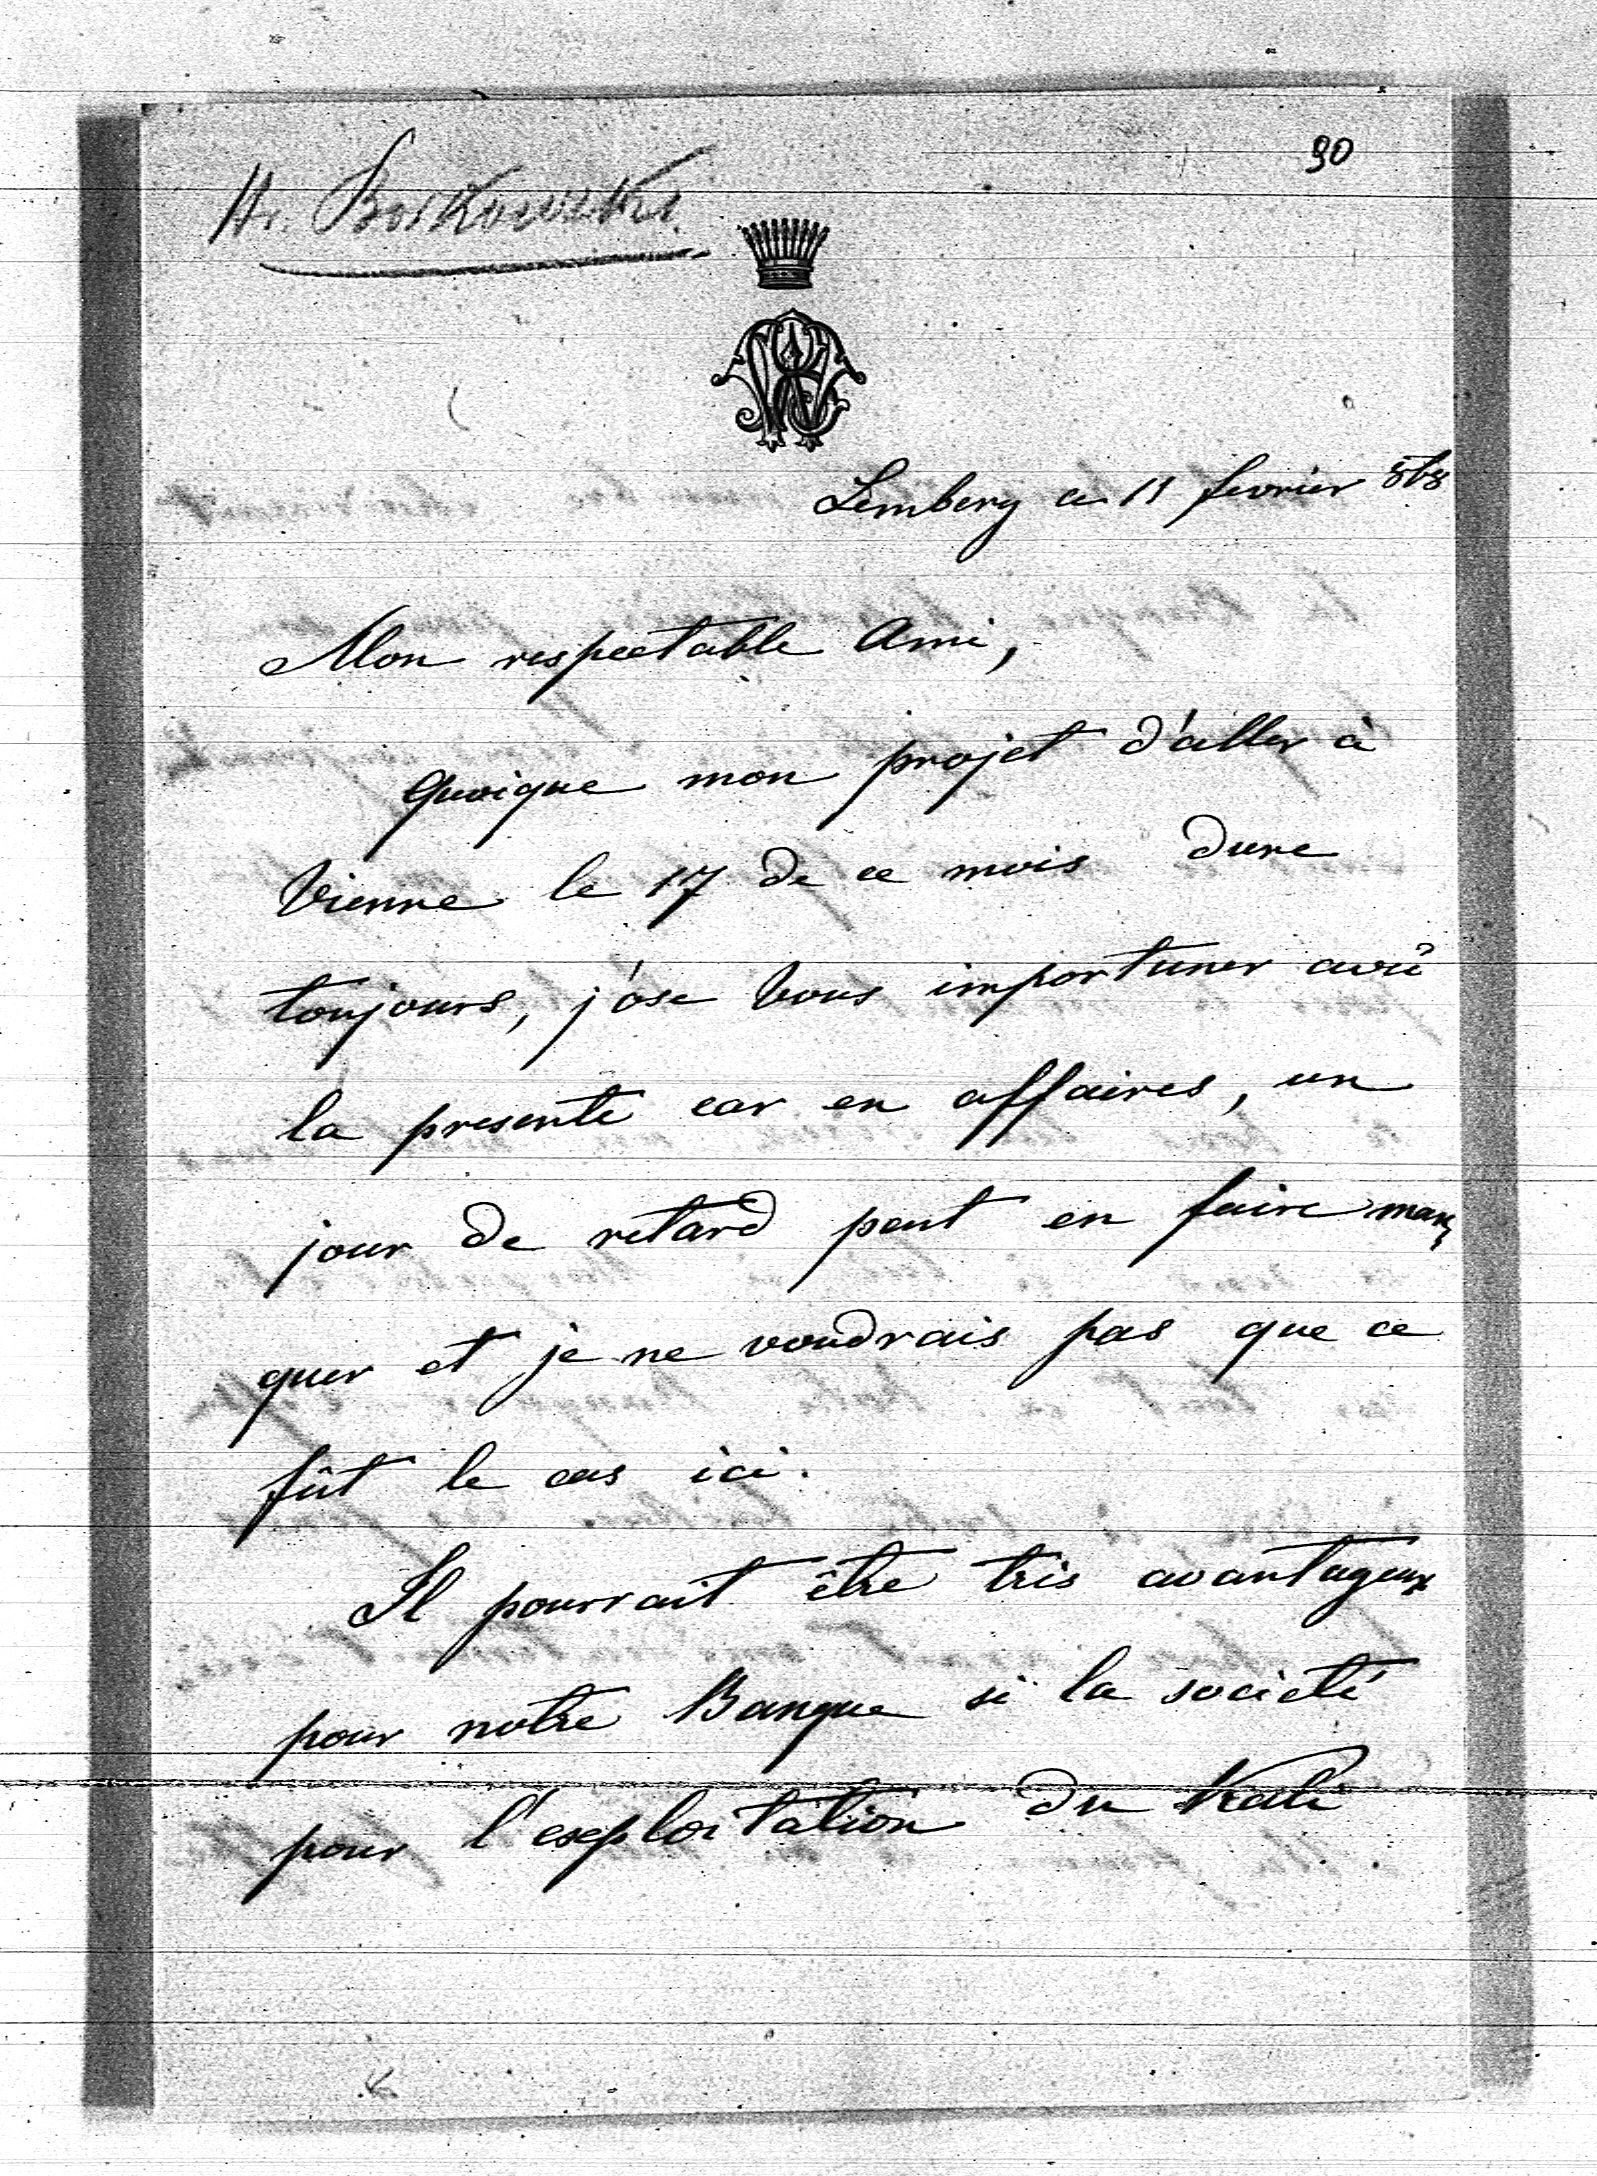 90
Lemberg ce 11 fevrier 868
Mon respectable Ami,
Quoique mon projet d'aller à
Vienne le 17 de ce mois dure
toujours, j'ose Vous importuner avec
la presente car en affaires, un
jour de retard peut en faire man
quer et je ne voudrais pas que ce
fût le cas ici.
Il pourrait être très avantageux
pour notre Banque si la societé
pour l'exploitation du Kali